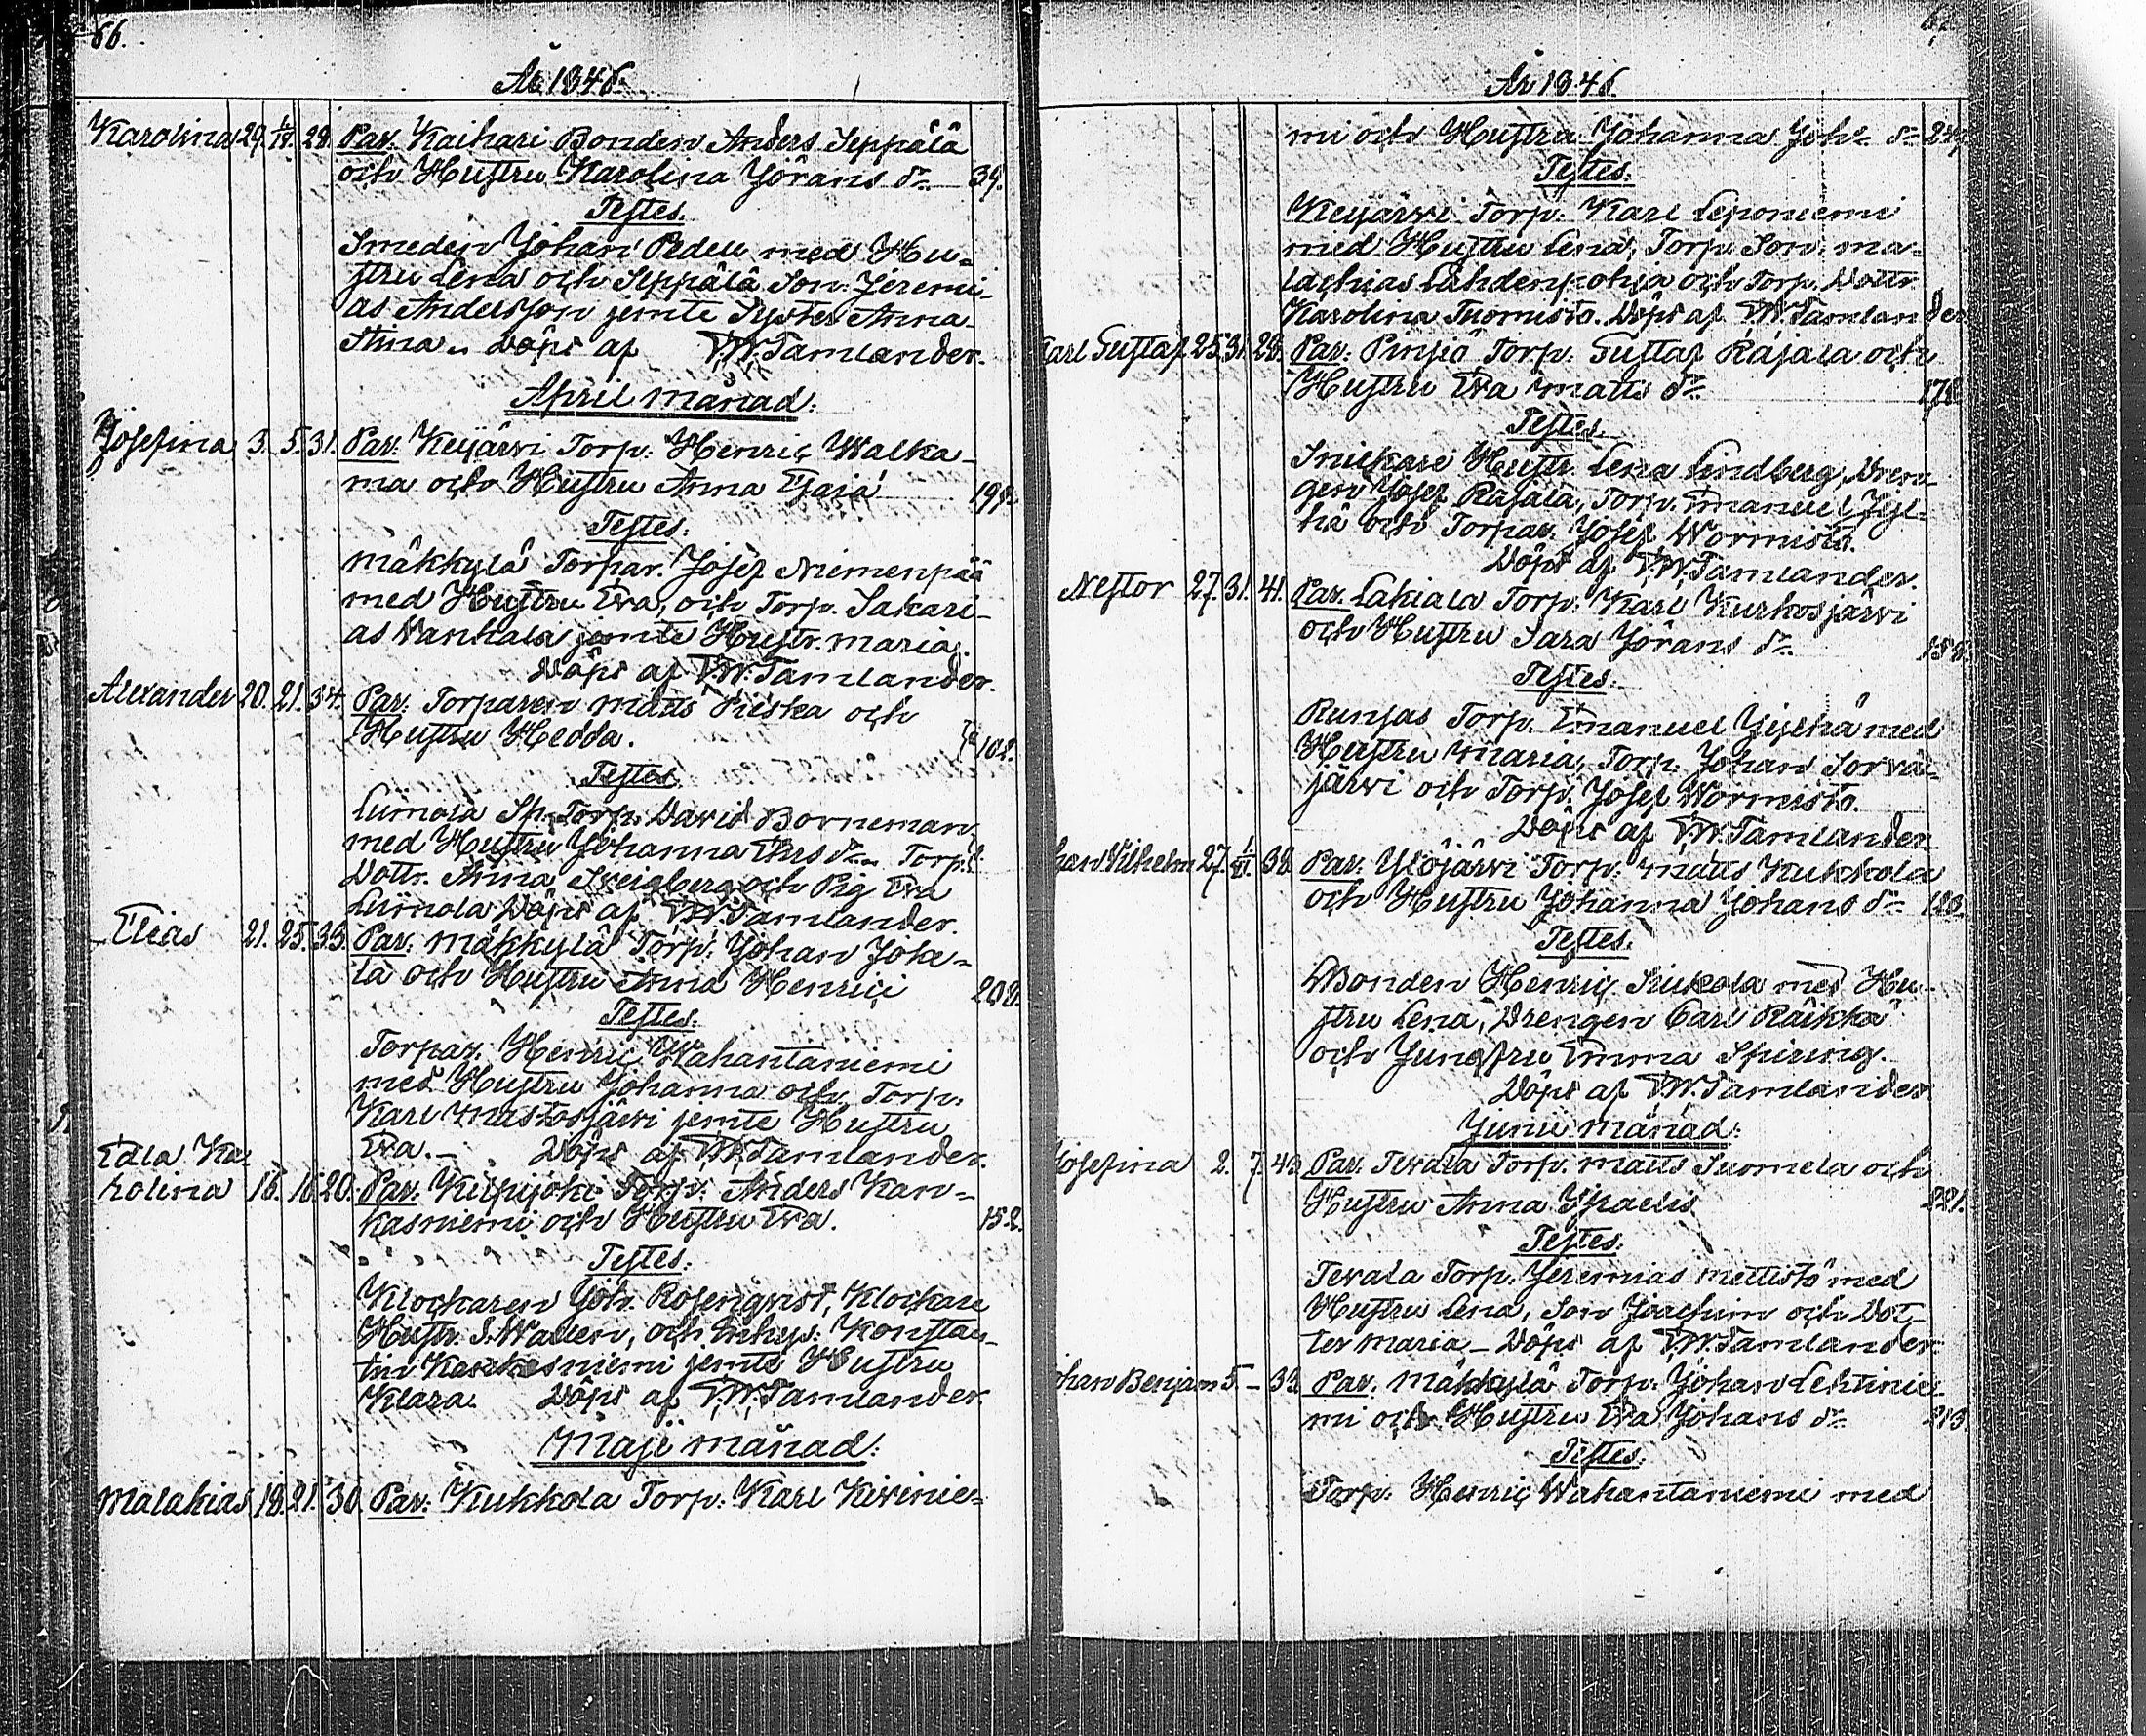 66.
År 1846.
Karolina 29. 1/IV. 28. Par. Kaihari Bonden Anders Seppälä
och Hustru Karolina Jörans dr. 39.
Testes.
Smeden Johan Peden med Hu-
stru Lena och Seppälä Son Jeremi-
as Andersson jemte Syster Anna
Stina. Döpt af F.W. Tamlander.
April månad.
Josefina 3. 5. 31. Par. Keijärvi Torp. Henric Walka-
ma och Hustru Anna Caja
Testes.
Mäkkylä Torpar. Josef Niemenpää
med Hustru Eva, och Torp. Sakari-
as Vanhala jemte Hustr. Maria.
Döpt af F.W. Tamlander.
Alexander 20. 21. 34. Par. Torparen Matts Piiska och
Hustru Hedda. 102.
Testes.
Liimola Sp. Torp. David Borneman
med Hustru Johanna dr. Torp.
Dottr. Anna Sveigberg och Pig. Eva
Liimola Döpt af F.W. Tamlander.
Elias 21. 25. 33. Par. Mäkkylä Torp. Johan Joke-
la och Hustru Anna Henrici 208.
Testes.
Torpar. Henric Wahantaniemi
med Hustru Johanna och Torp.
Karl Mustosjärvi jemte Hustru
Eva. Döpt af F.W. Tamlander.
Edla Ka-
rolina 16. 16. 20. Par. Keipijoki Torp. Anders Kan-
kasniemi och Hustru Eva. 152.
Testes.
Klockaren Joh. Rosenqvist, Klockare
Hustr. S. Wallen, och Inhys. Konstan-
tin Kankasniemi jemte Hustru
Klara. Döpt af F.W. Tamlander.
Maji månad.
Malakias 18. 21. 30. Par. Kukkola Torp. Karl Kivinie-
År 1846.
mi och Hustru Johanna Joh. dr.
Testes.
Keijärvi Torp. Karl Leponiemi
med Hustru Lena, Torp. Son. Ma-
lachias Lahdenpohja och Torp. Dottr.
Karolina Tuomisto. Döpt af F.W. Tamlander
Carl Gustaf 25. 31. 28. Par. Pinsiö Torp. Gustaf Rajala och
Hustru Eva Matts dr. 178.
Testes.
Snickare Hustr. Lena Lindberg, Dren-
gen Josef Rajala, Torp. Emanuel Jyl-
hä och Torpar. Josef Wormisto.
Döpt af F.W. Tamlander.
Nestor 27. 31. 41. Par. Lakiala Torp. Karl Kurkosjärvi
och Hustru Sara Jörans dr. 158.
Testes.
Runsas Torp. Emanuel Jylhä med
Hustru Maria, Torp. Johan Sorva-
järvi och Torp. Josef Wormisto.
Döpt af F.W. Tamlander
han Vilhelm 27. 1/VI. 38. Par. Ylöjärvi Torp. Matts Kukkola
och Hustru Johanna Johans dr. 123.
Testes.
Bonden Henric Siukola med Hu-
stru Lena, Drengen Carl Räikkä
och Jungfru Emma Spiring.
Döpt af F.W. Tamlander
Junii månad.
Josefina 2. 7. 43. Par. Tevala Torp. Matts Suomela och
Hustru Anna Israelis 221.
Testes.
Tevala Torp. Jeremias Mettistö med
Hustru Lena, Son Joachim och Dot-
ter Maria – Döpt af F.W. Tamlander
ohan Benjam 5. – 33. Par. Mäkkylä Torp. Johan Lehtinie-
mi och Hustru Eva Johans dr. 213.
Testes.
Torp. Henric Wahantaniemi med